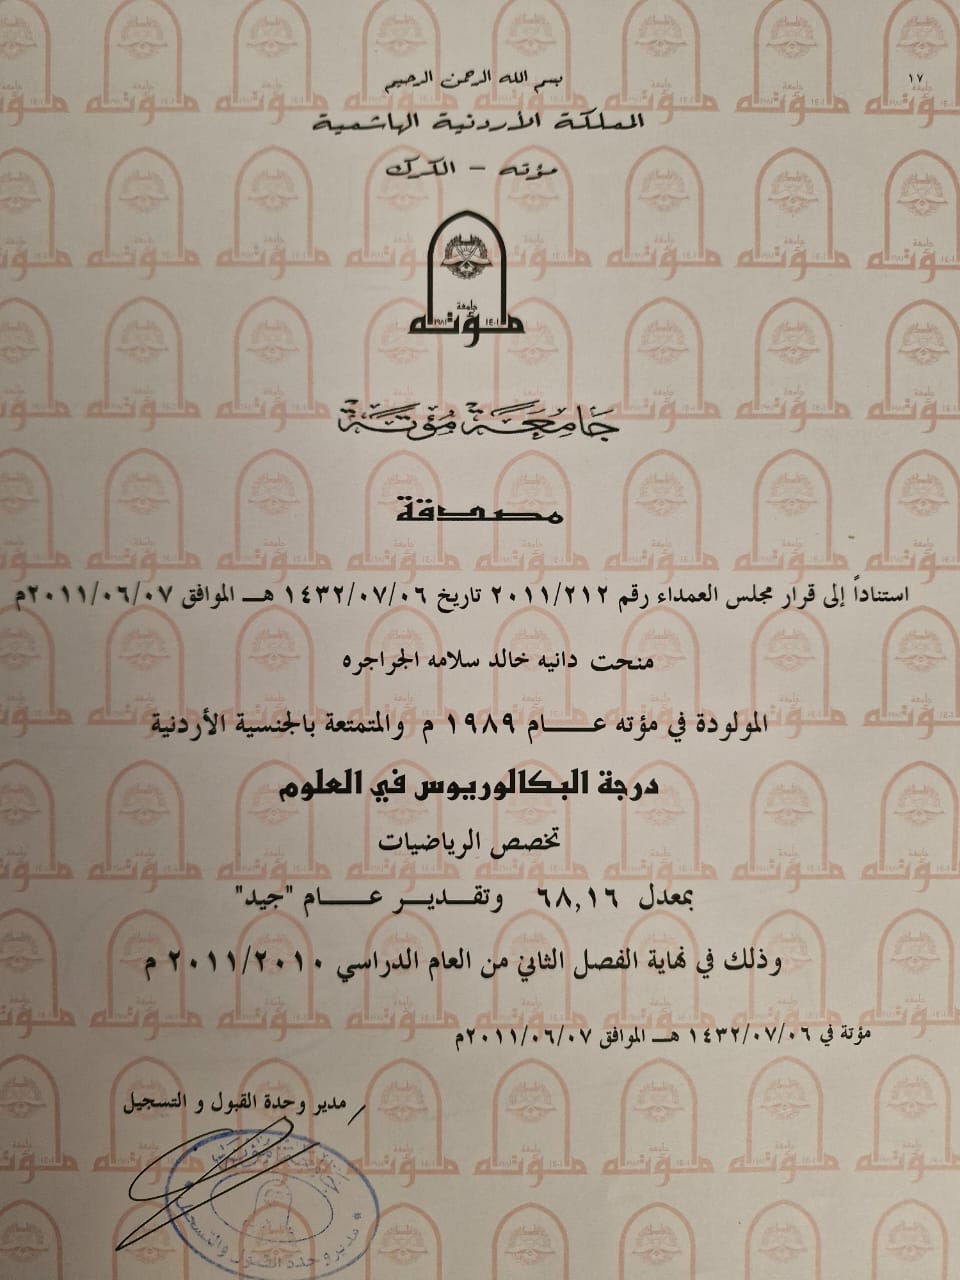 ١٧
بسم الله الرحمن الرحيم
المملكة الأردنية الهاشمية
مؤته - الكرك
جامعة
مؤته
١٤٠١ ١٩٨١
جَامِعَة مُؤتَة
مصدقة
استناداً إلى قرار مجلس العمداء رقم ٢٠١١/٢١٢ تاريخ ١٤٣٢/٠٧/٠٦ هـــ الموافق ٢٠١١/٠٦/٠٧م
منحت دانيه خالد سلامه الجراجره
المولودة في مؤته عـــــام ١٩٨٩ م والمتمتعة بالجنسية الأردنية
درجة البكالوريوس في العلوم
تخصص الرياضيات
بمعدل ٦٨,١٦ وتقـــديـــر عـــــام "جيد"
وذلك في نهاية الفصل الثاني من العام الدراسي ٢٠١١/٢٠١٠ م
مؤتة في ١٤٣٢/٠٧/٠٦ هـــ الموافق ٢٠١١/٠٦/٠٧م
مدير وحدة القبول و التسجيل
جامعة مؤتة
مدير وحدة القبول والتسجيل